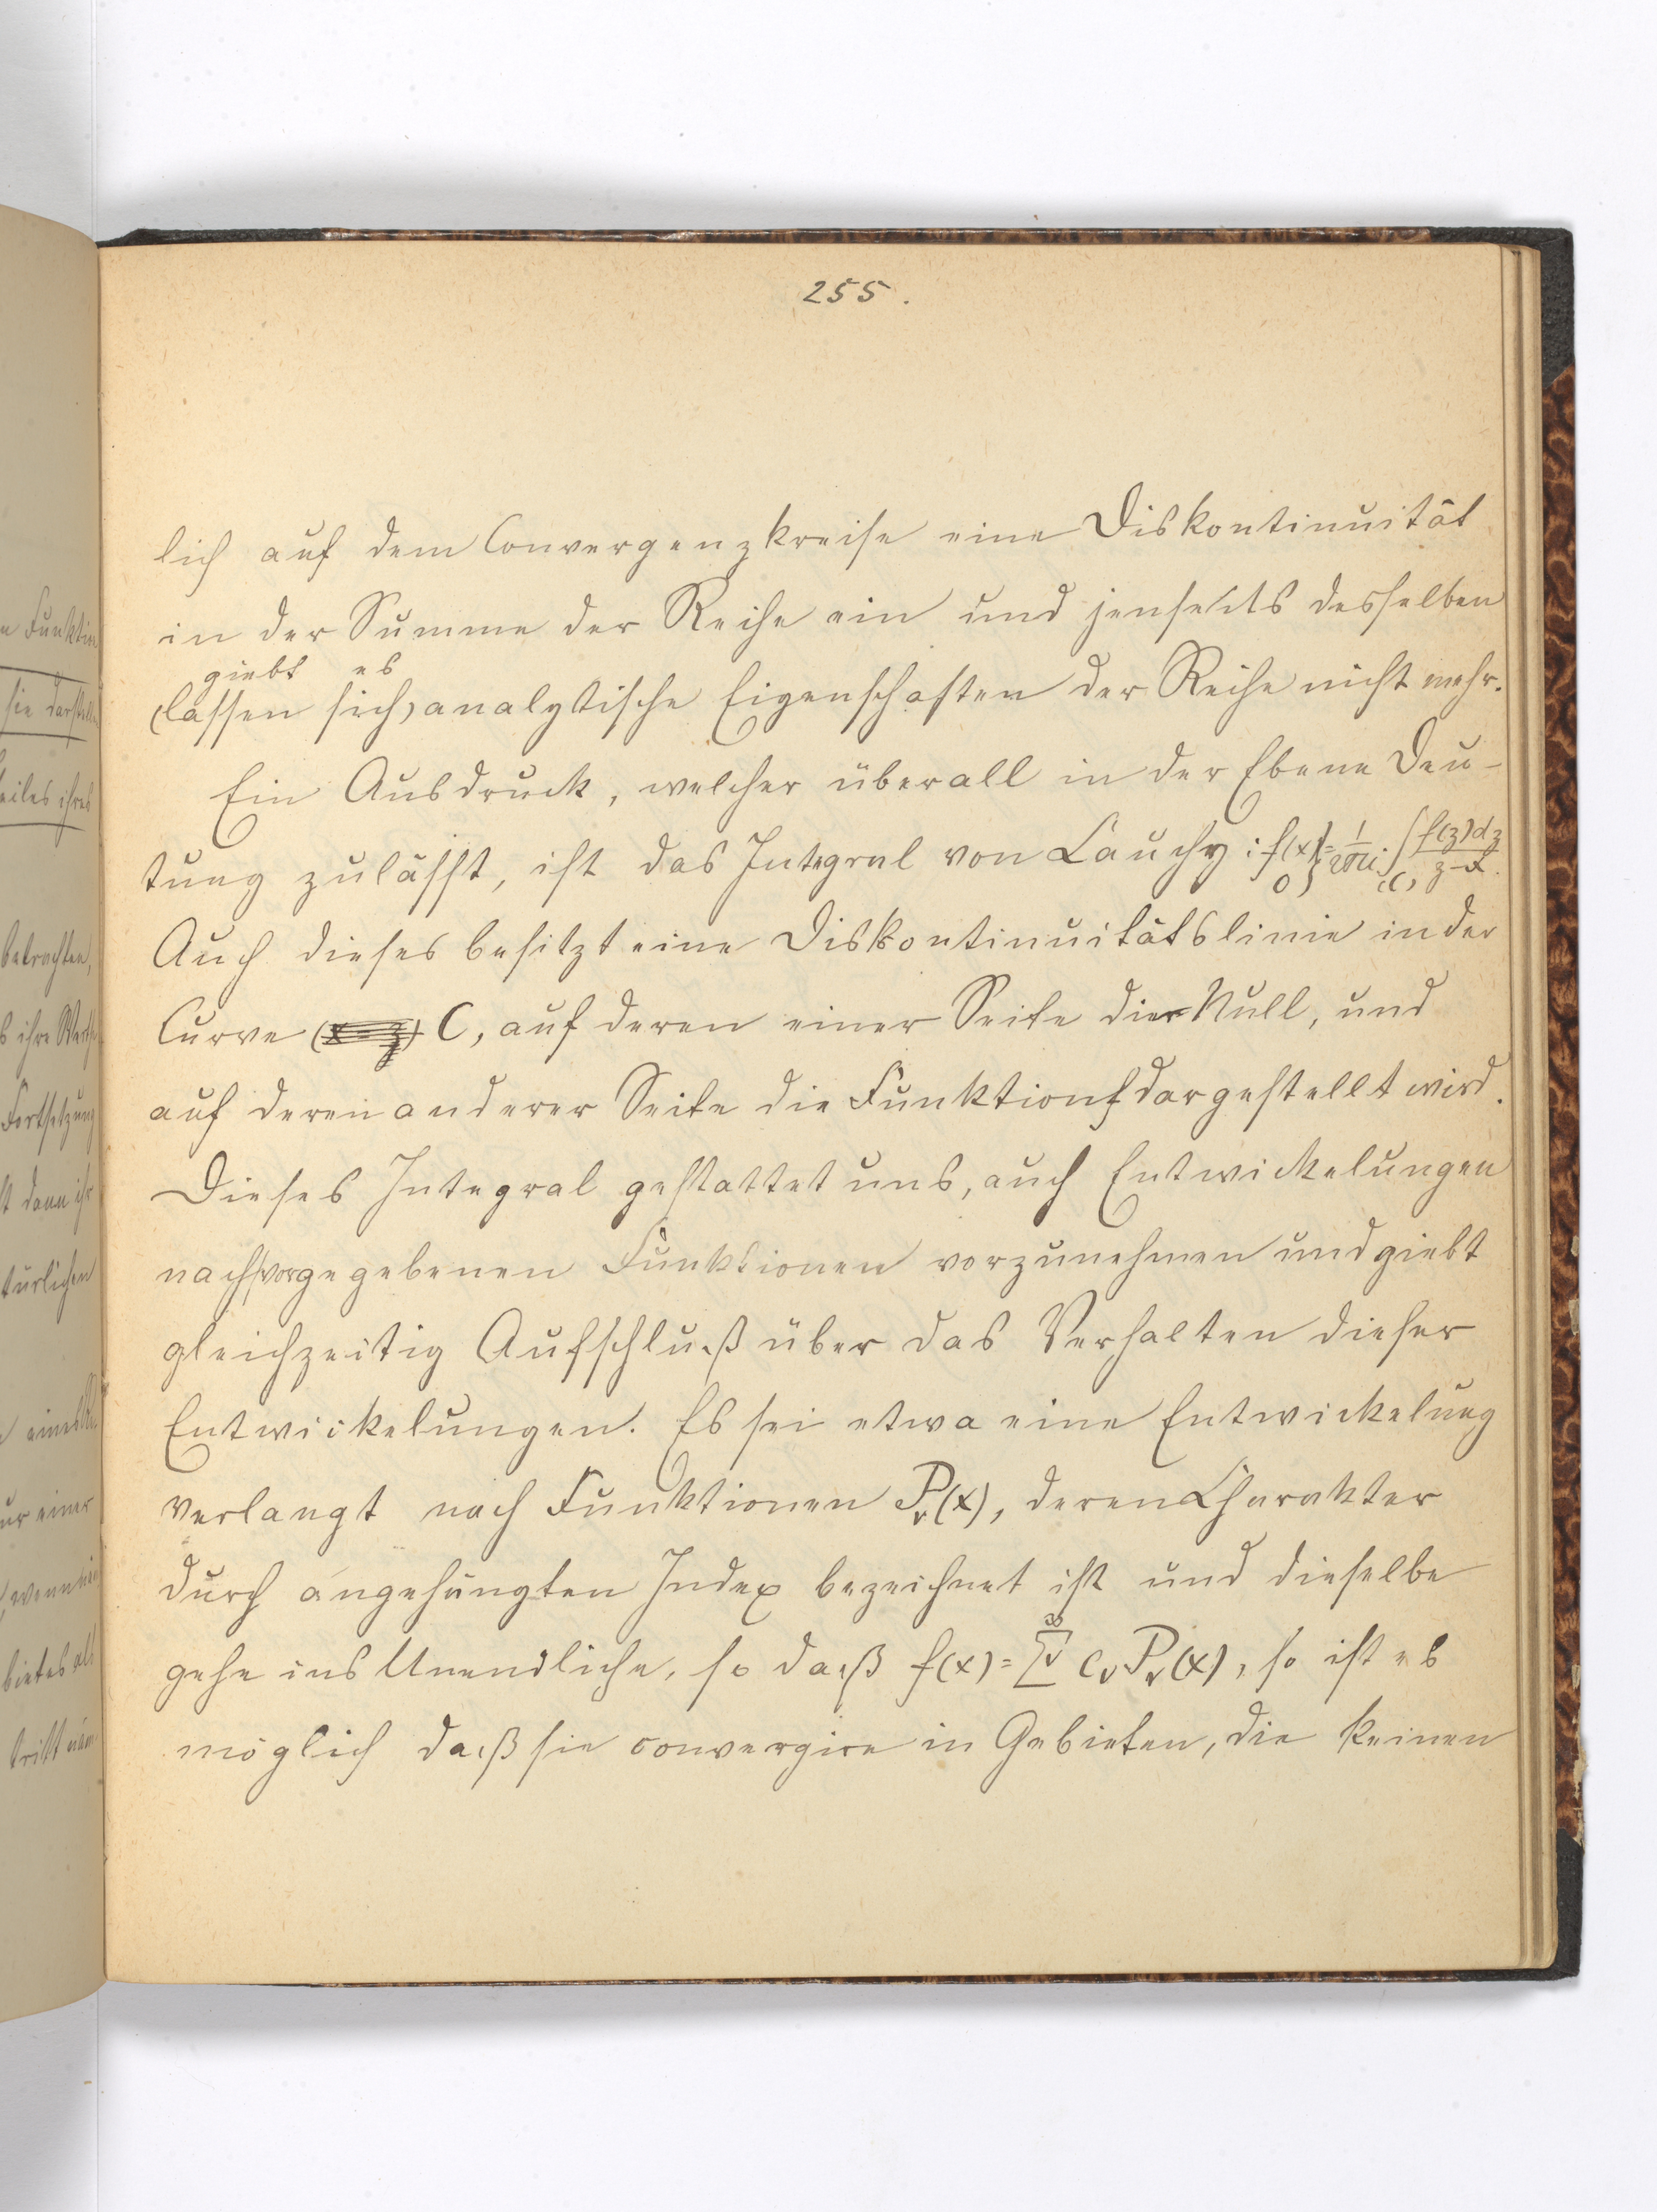 255.
lich auf dem Convergenzkreise eine Diskontinuität
in der Summe der Reihe ein und jenseits desselben
giebt es
(lassen sich) analytische Eigenschaften der Reihe nicht mehr.
Ein Ausdruck, welcher überall in der Ebene Deu-
tung zulässt, ist das Integral von Cauchy: f(x) 0 } = 1/2πi ∫(C) f(z)dz/z-x.
Auch dieses besitzt eine Diskontinuitätslinie in der
Curve C, auf deren einer Seite die Null, und
auf deren anderer Seite die Funktion f dargestellt wird.
Dieses Integral gestattet uns, auch Entwickelungen
nach vorgegebenen Funktionen vorzunehmen und giebt
gleichzeitig Aufschluß über das Verhalten dieser
Entwickelungen. Es sei etwa eine Entwickelung
verlangt nach Funktionen Pᵥ(x), deren Charakter
durch angehängten Index bezeichnet ist und dieselbe
gehe ins Unendliche, so daß f(x) = ∞ Σᵥ cᵥ Pᵥ(x), so ist es
möglich daß sie convergire in Gebieten, die keinen